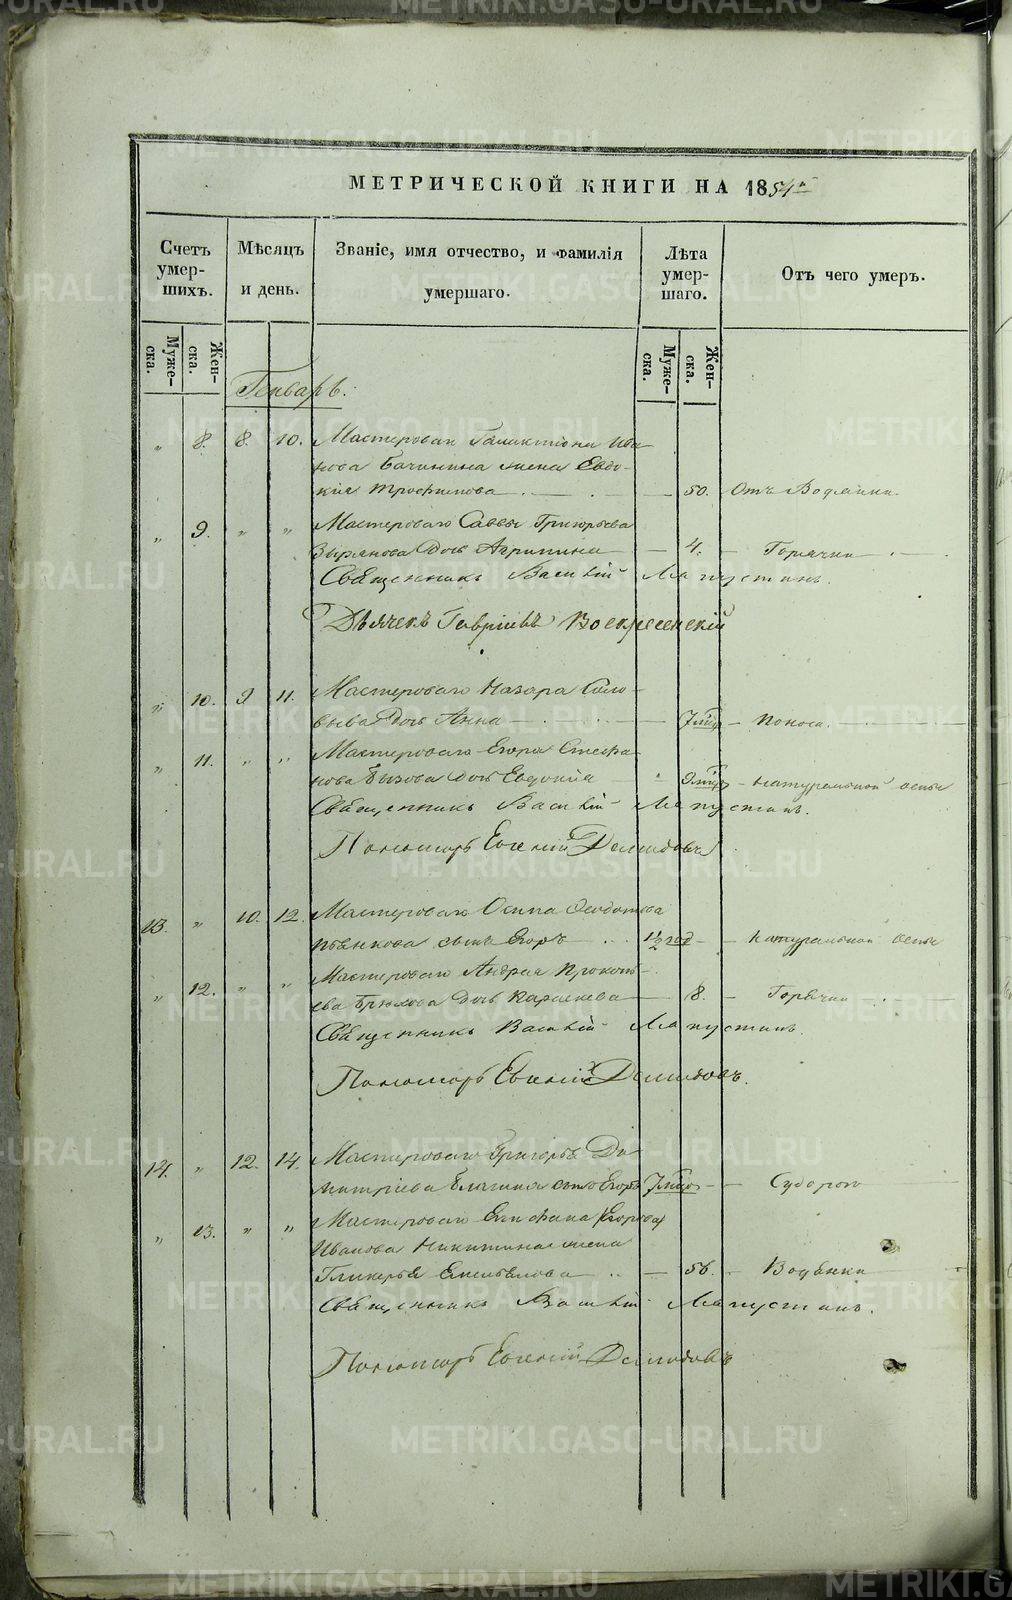 МЕТРИЧЕСКОЙ КНИГИ НА 1854
Счетъ умер- шихъ.
Мѣсяцъ и день.
Званіе, имя отчество, и фамилія умершаго.
Лѣта умер- шаго.
Отъ чего умеръ.
Муже- ска.
Жен- ска.
Муже- ска.
Жен- ска.
Генварь.
„ 8. 8. 10. Мастероваго Галактіона Ива-
нова Бачинина жена Евдо-
кия Трофимова 50. Отъ Водянки
„ 9. „ „ Мастероваго Саввы Григорьева
Зырянова Дочь Агрипина 4. Горячки
Священникъ Василій Лапустинъ.
Дьячекъ Гавріилъ Воскресенскій
„ 10. 9 11. Мастероваго Назара Соло-
вьева Дочь Анна 7 Поноса.
„ 11. „ „ Мастероваго Егора Стефа-
нова Дочь Евдокія 9 Натуральной оспы
Священникъ Василій Лапустинъ.
Пономарь Евгеній Демидовъ
13. „ 10. 12. Мастероваго Осипа Федотова
Пьянкова сынъ Егоръ 1½ год Натуральной Оспы
„ 12. „ „ Мастероваго Андрея Прокопь-
ева Брюхова Дочь Параскева 8. Горячки
Священникъ Василій Лапустинъ.
Пономарь Евгеній Демидовъ.
14. „ 12. 14. Мастероваго Григорья Ди-
митріева сынъ Егоръ 7 Судорогъ
„ 13. „ „ Мастероваго Епифана (Егорова)
Иванова Никитина жена
Гликерья Емельянова 56. Водянки
Священникъ Василій Лапустинъ.
Пономарь Евгеній Демидовъ
METRIKI.GASO-URAL.RU